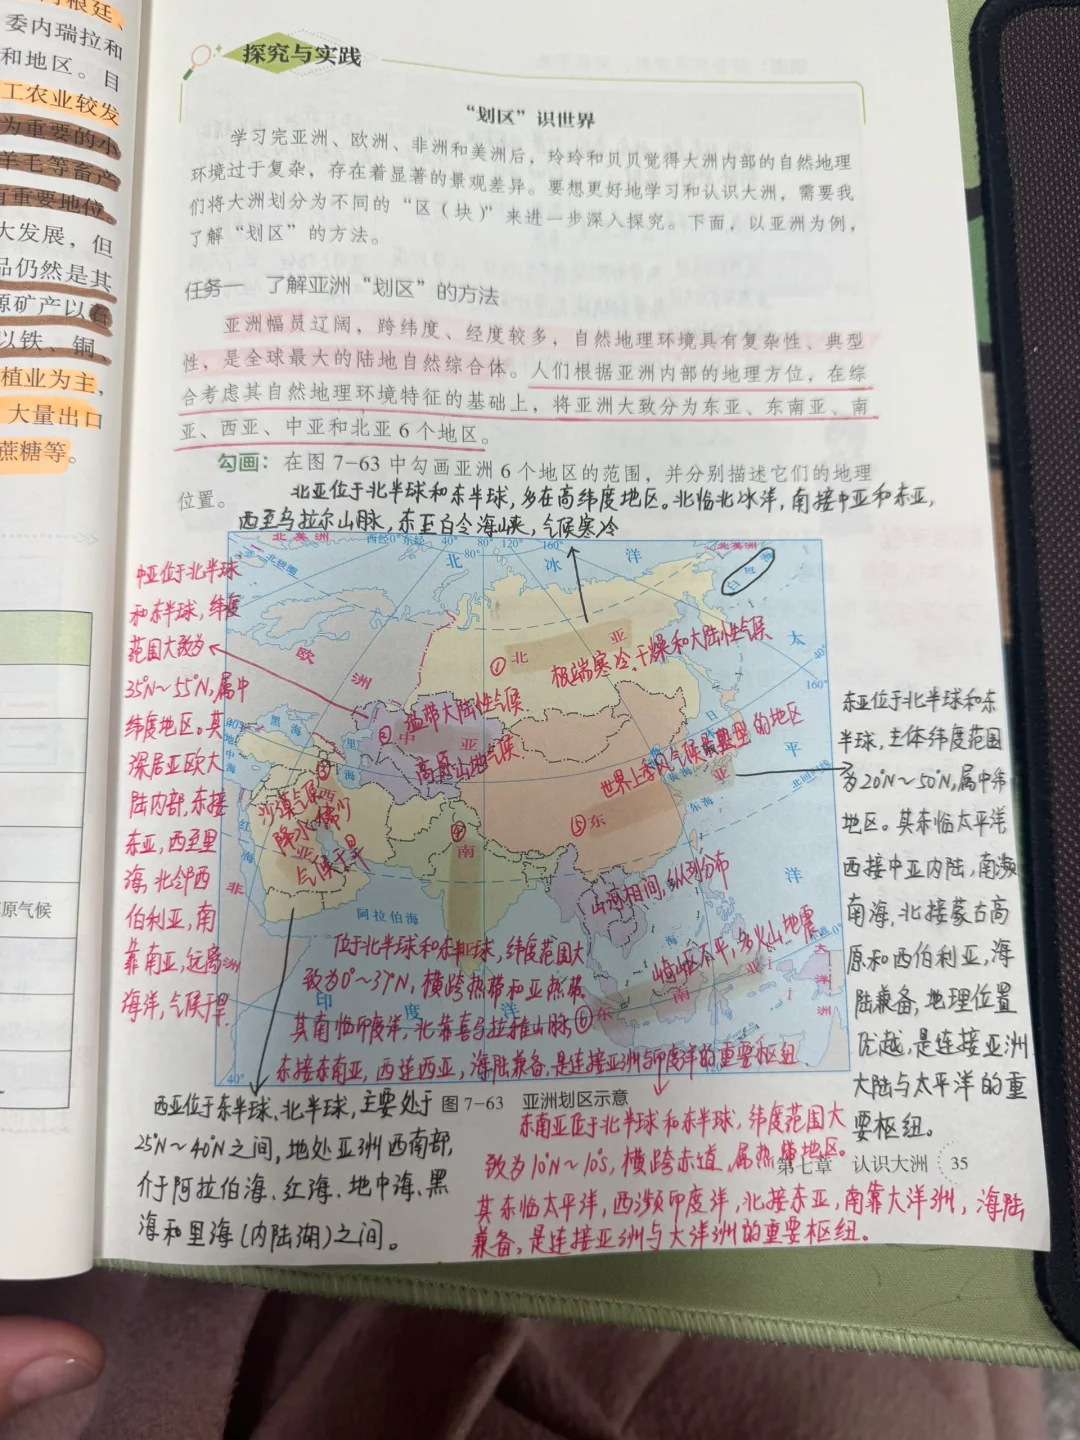 委内瑞拉和
和地区。目
工农业较发
为重要的小
羊毛等畜产
有重要地位。
大发展，但
品仍然是其
源矿产以石
以铁、铜、
植业为主，
大量出口
蔗糖等。
原气候
探究与实践
“划区”识世界
学习完亚洲、欧洲、非洲和美洲后，玲玲和贝贝觉得大洲内部的自然地理
环境过于复杂，存在着显著的景观差异。要想更好地学习和认识大洲，需要我
们将大洲划分为不同的“区（块）”来进一步深入探究。下面，以亚洲为例，
了解“划区”的方法。
任务一 了解亚洲“划区”的方法
亚洲幅员辽阔，跨纬度、经度较多，自然地理环境具有复杂性、典型
性，是全球最大的陆地自然综合体。人们根据亚洲内部的地理方位，在综
合考虑其自然地理环境特征的基础上，将亚洲大致分为东亚、东南亚、南
亚、西亚、中亚和北亚6个地区。
勾画：在图7-63中勾画亚洲6个地区的范围，并分别描述它们的地理
位置。
北亚位于北半球和东半球，多在高纬度地区。北临北冰洋，南接中亚和东亚，
西至乌拉尔山脉，东至白令海峡，气候寒冷
中亚位于北半球
和东半球，纬度
范围大致为
35°N～55°N，属中
纬度地区。其
深居亚欧大
陆内部，东接
东亚，西至里
海，北邻西
伯利亚，南
靠南亚，远离
海洋，气候干旱.
北美洲
西经0°东经 40° 80° 120° 160°
北美洲
北极圈
80°
北冰洋
白令海
欧洲
①北亚
极端寒冷，干燥和大陆性气候
太平洋
40°
160°
②中亚
温带大陆性气候
高原山地气候
黑海
里海
地中海
红海
③西亚
沙漠气候
降水稀少
气候干旱
④南亚
世界上季风气候最典型的地区
⑤东亚
日本海
黄海
东海
北回归线
山河相间，纵列分布
崎岖不平，多火山、地震
南海
非洲
阿拉伯海
印度洋
⑥东南亚
大洋洲
0°
40°
120°
位于北半球和东半球，纬度范围大
致为0°～37°N，横跨热带和亚热带.
其南临印度洋，北靠喜马拉雅山脉，
东接东南亚，西连西亚，海陆兼备，是连接亚洲与印度洋的重要枢纽.
东亚位于北半球和东
半球，主体纬度范围
为20°N～50°N，属中纬
地区。其东临太平洋
西接中亚内陆，南濒
南海，北接蒙古高
原和西伯利亚，海
陆兼备，地理位置
优越，是连接亚洲
大陆与太平洋的重
要枢纽。
图7-63 亚洲划区示意
西亚位于东半球、北半球，主要处于
25°N～40°N之间，地处亚洲西南部，
介于阿拉伯海、红海、地中海、黑
海和里海（内陆湖）之间。
东南亚位于北半球和东半球，纬度范围大
致为10°N～10°S，横跨赤道，属热带地区。
其东临太平洋，西濒印度洋，北接东亚，南靠大洋洲，海陆
兼备，是连接亚洲与大洋洲的重要枢纽。
第七章 认识大洲 35